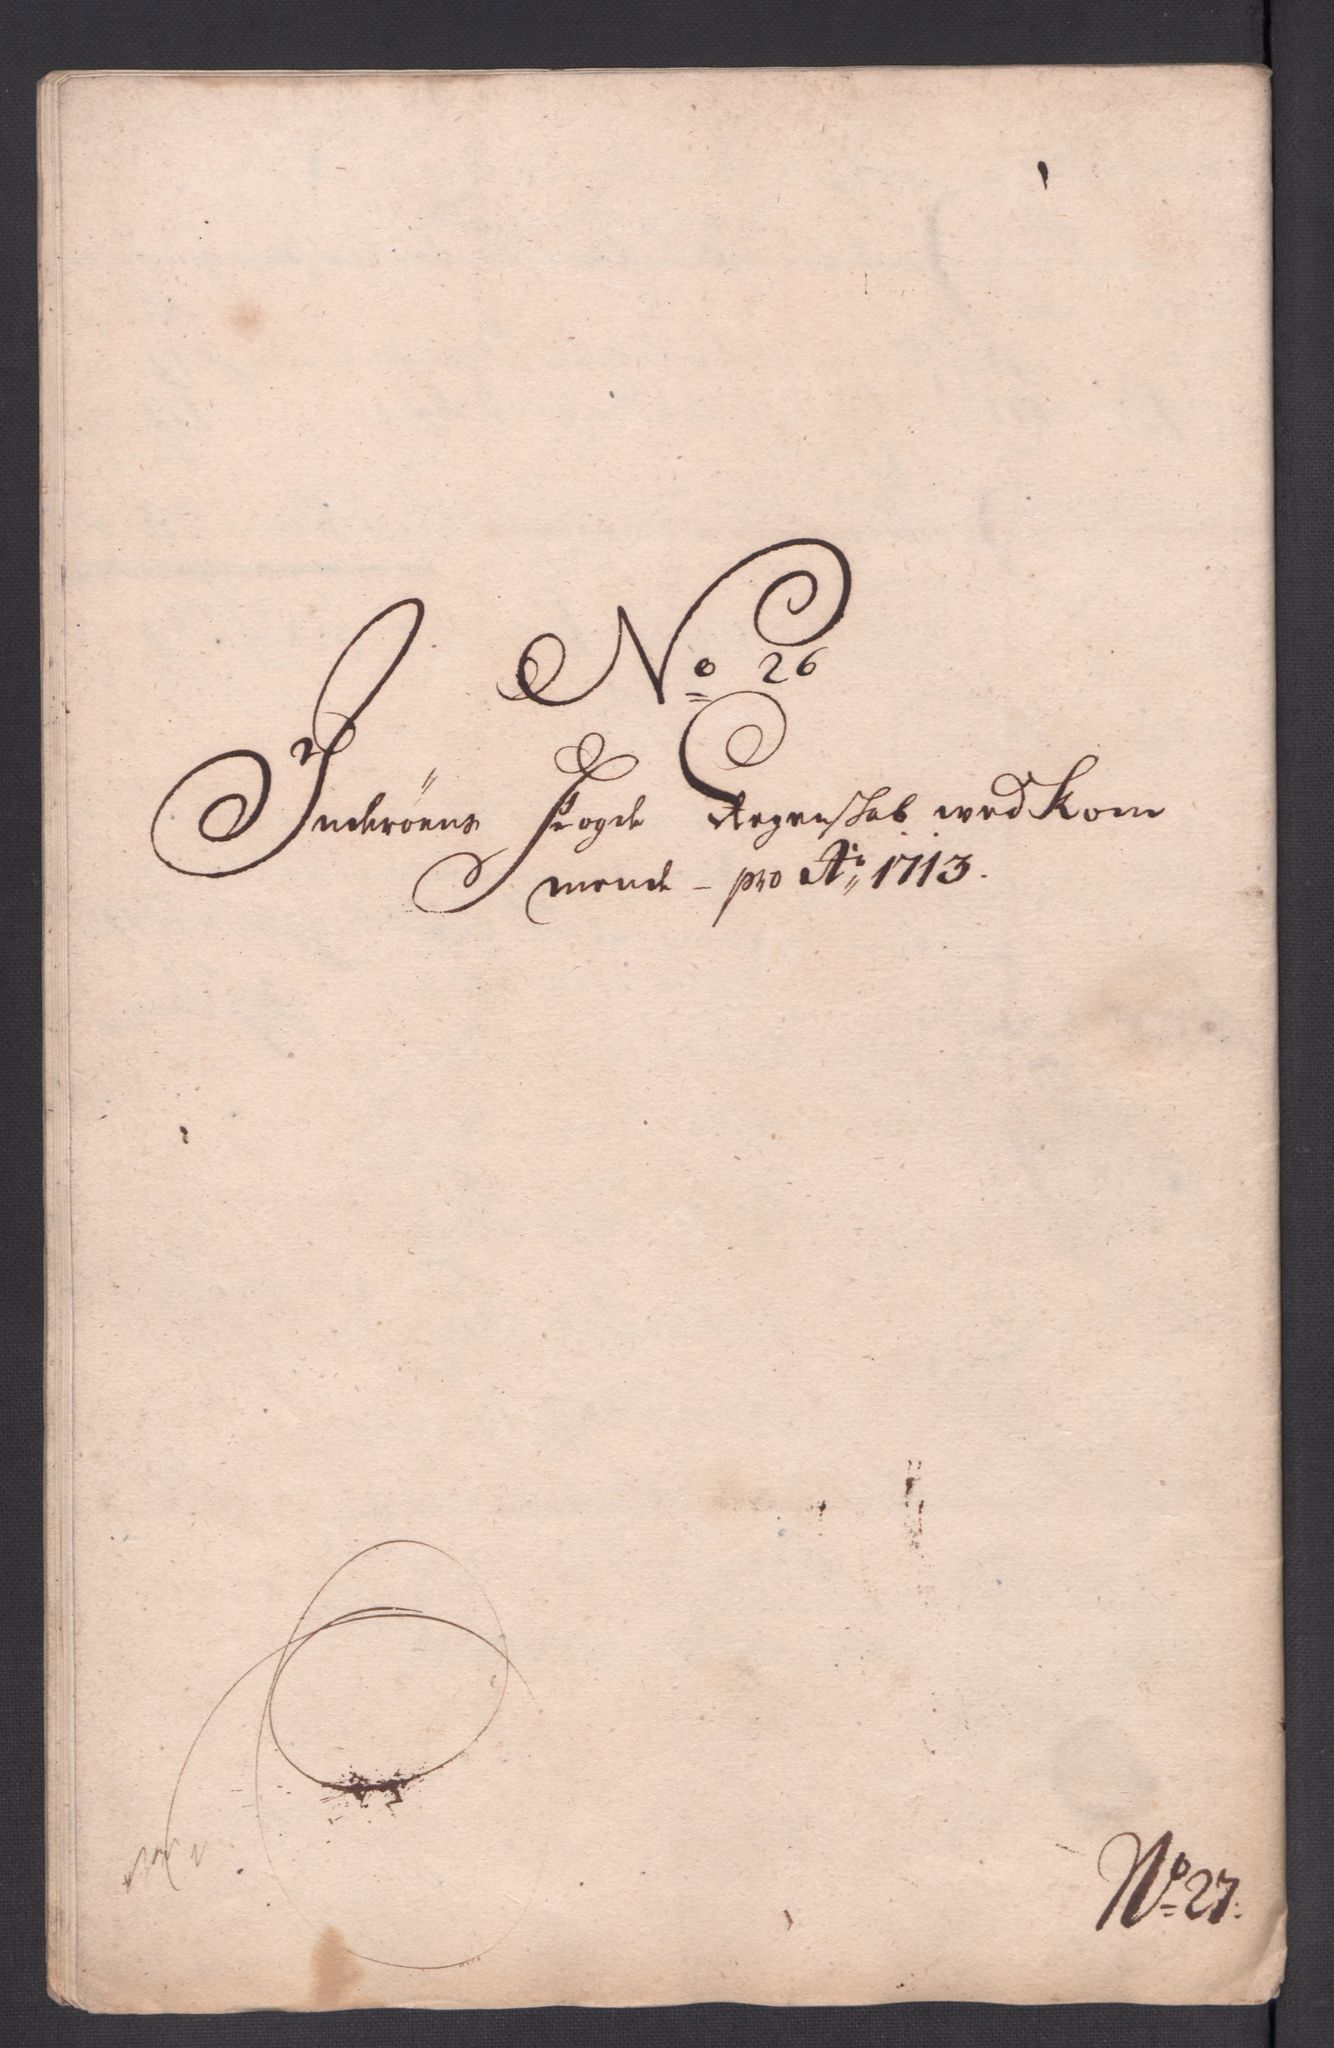 No 26
Inderöens Fogde Regenskab wed Kom
mende - pro Ao 1713.
No 27.